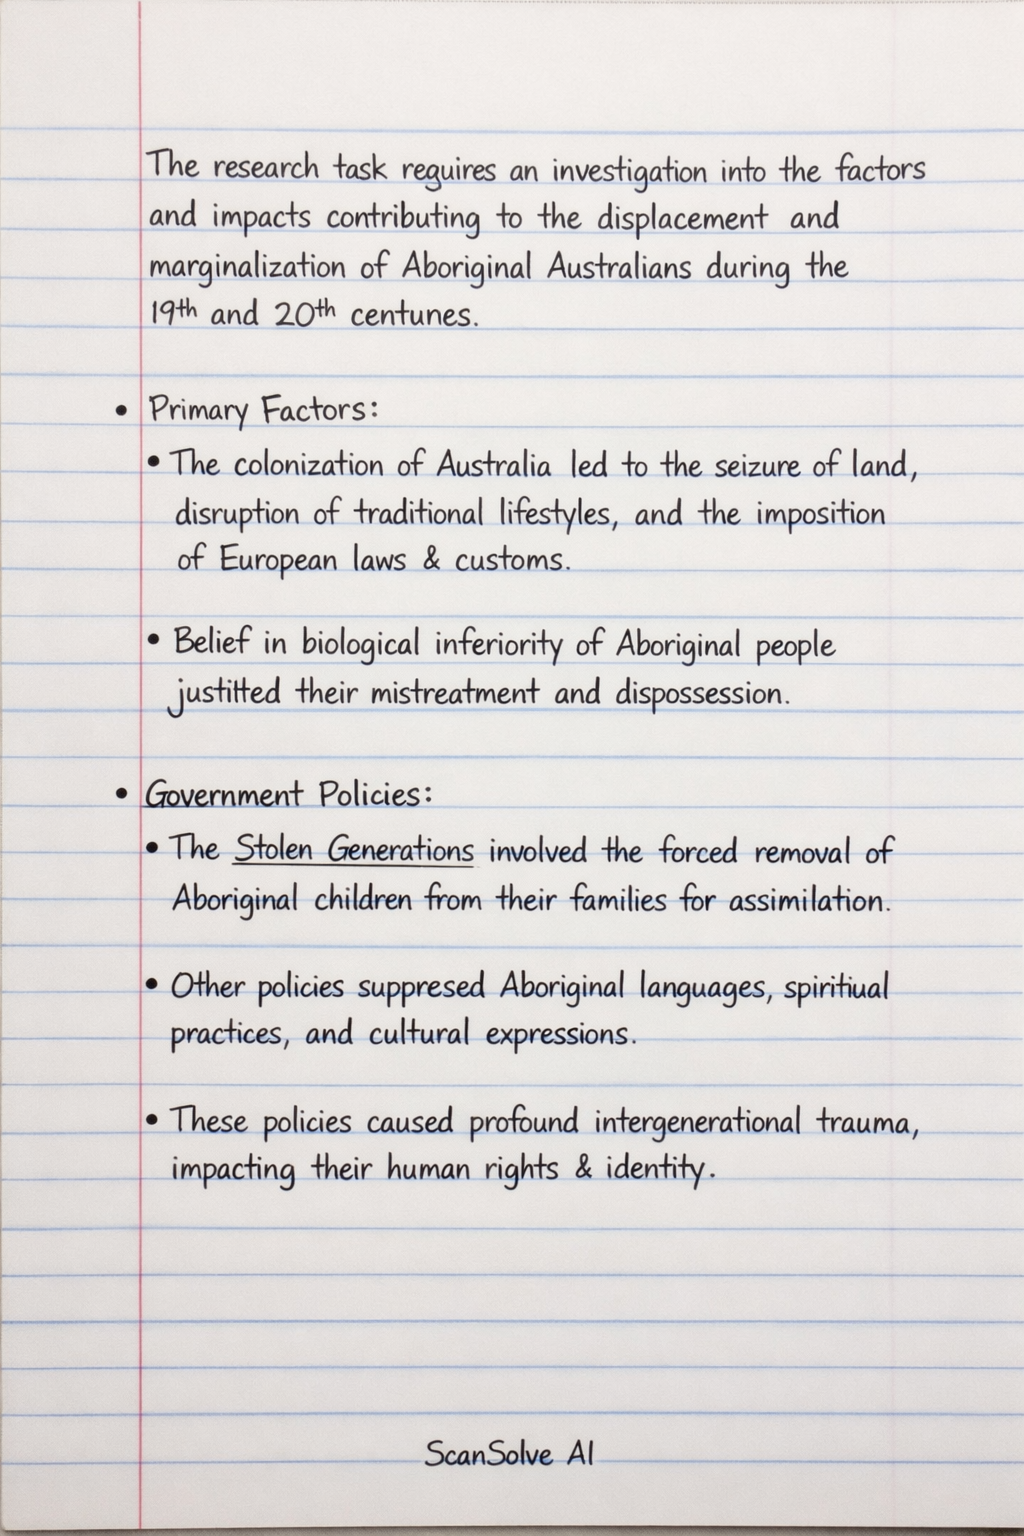 The research task requires an investigation into the factors
and impacts contributing to the displacement and
marginalization of Aboriginal Australians during the
19th and 20th centunes.
• Primary Factors:
• The colonization of Australia led to the seizure of land,
disruption of traditional lifestyles, and the imposition
of European laws & customs.
• Belief in biological inferiority of Aboriginal people
justitted their mistreatment and dispossession.
• Government Policies:
• The Stolen Generations involved the forced removal of
Aboriginal children from their families for assimilation.
• Other policies suppresed Aboriginal languages, spiritiual
practices, and cultural expressions.
• These policies caused profound intergenerational trauma,
impacting their human rights & identity.
ScanSolve AI